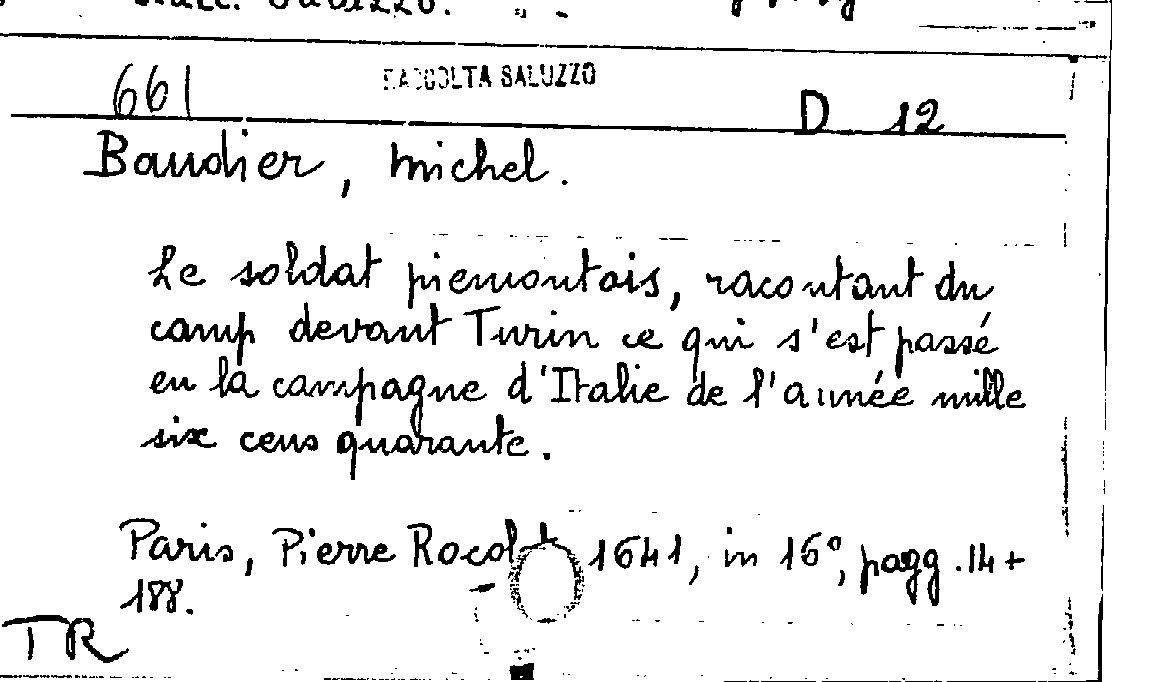 661
RACCOLTA SALUZZO
D 12
Baudier, Michel.
Le soldat piemontois, racontant du
camp devant Turin ce qui s'est passé
en la campagne d'Italie de l'année mille
six cens quarante.
Paris, Pierre Rocolet 1641, in 16°, pagg. 14+
188.
TR